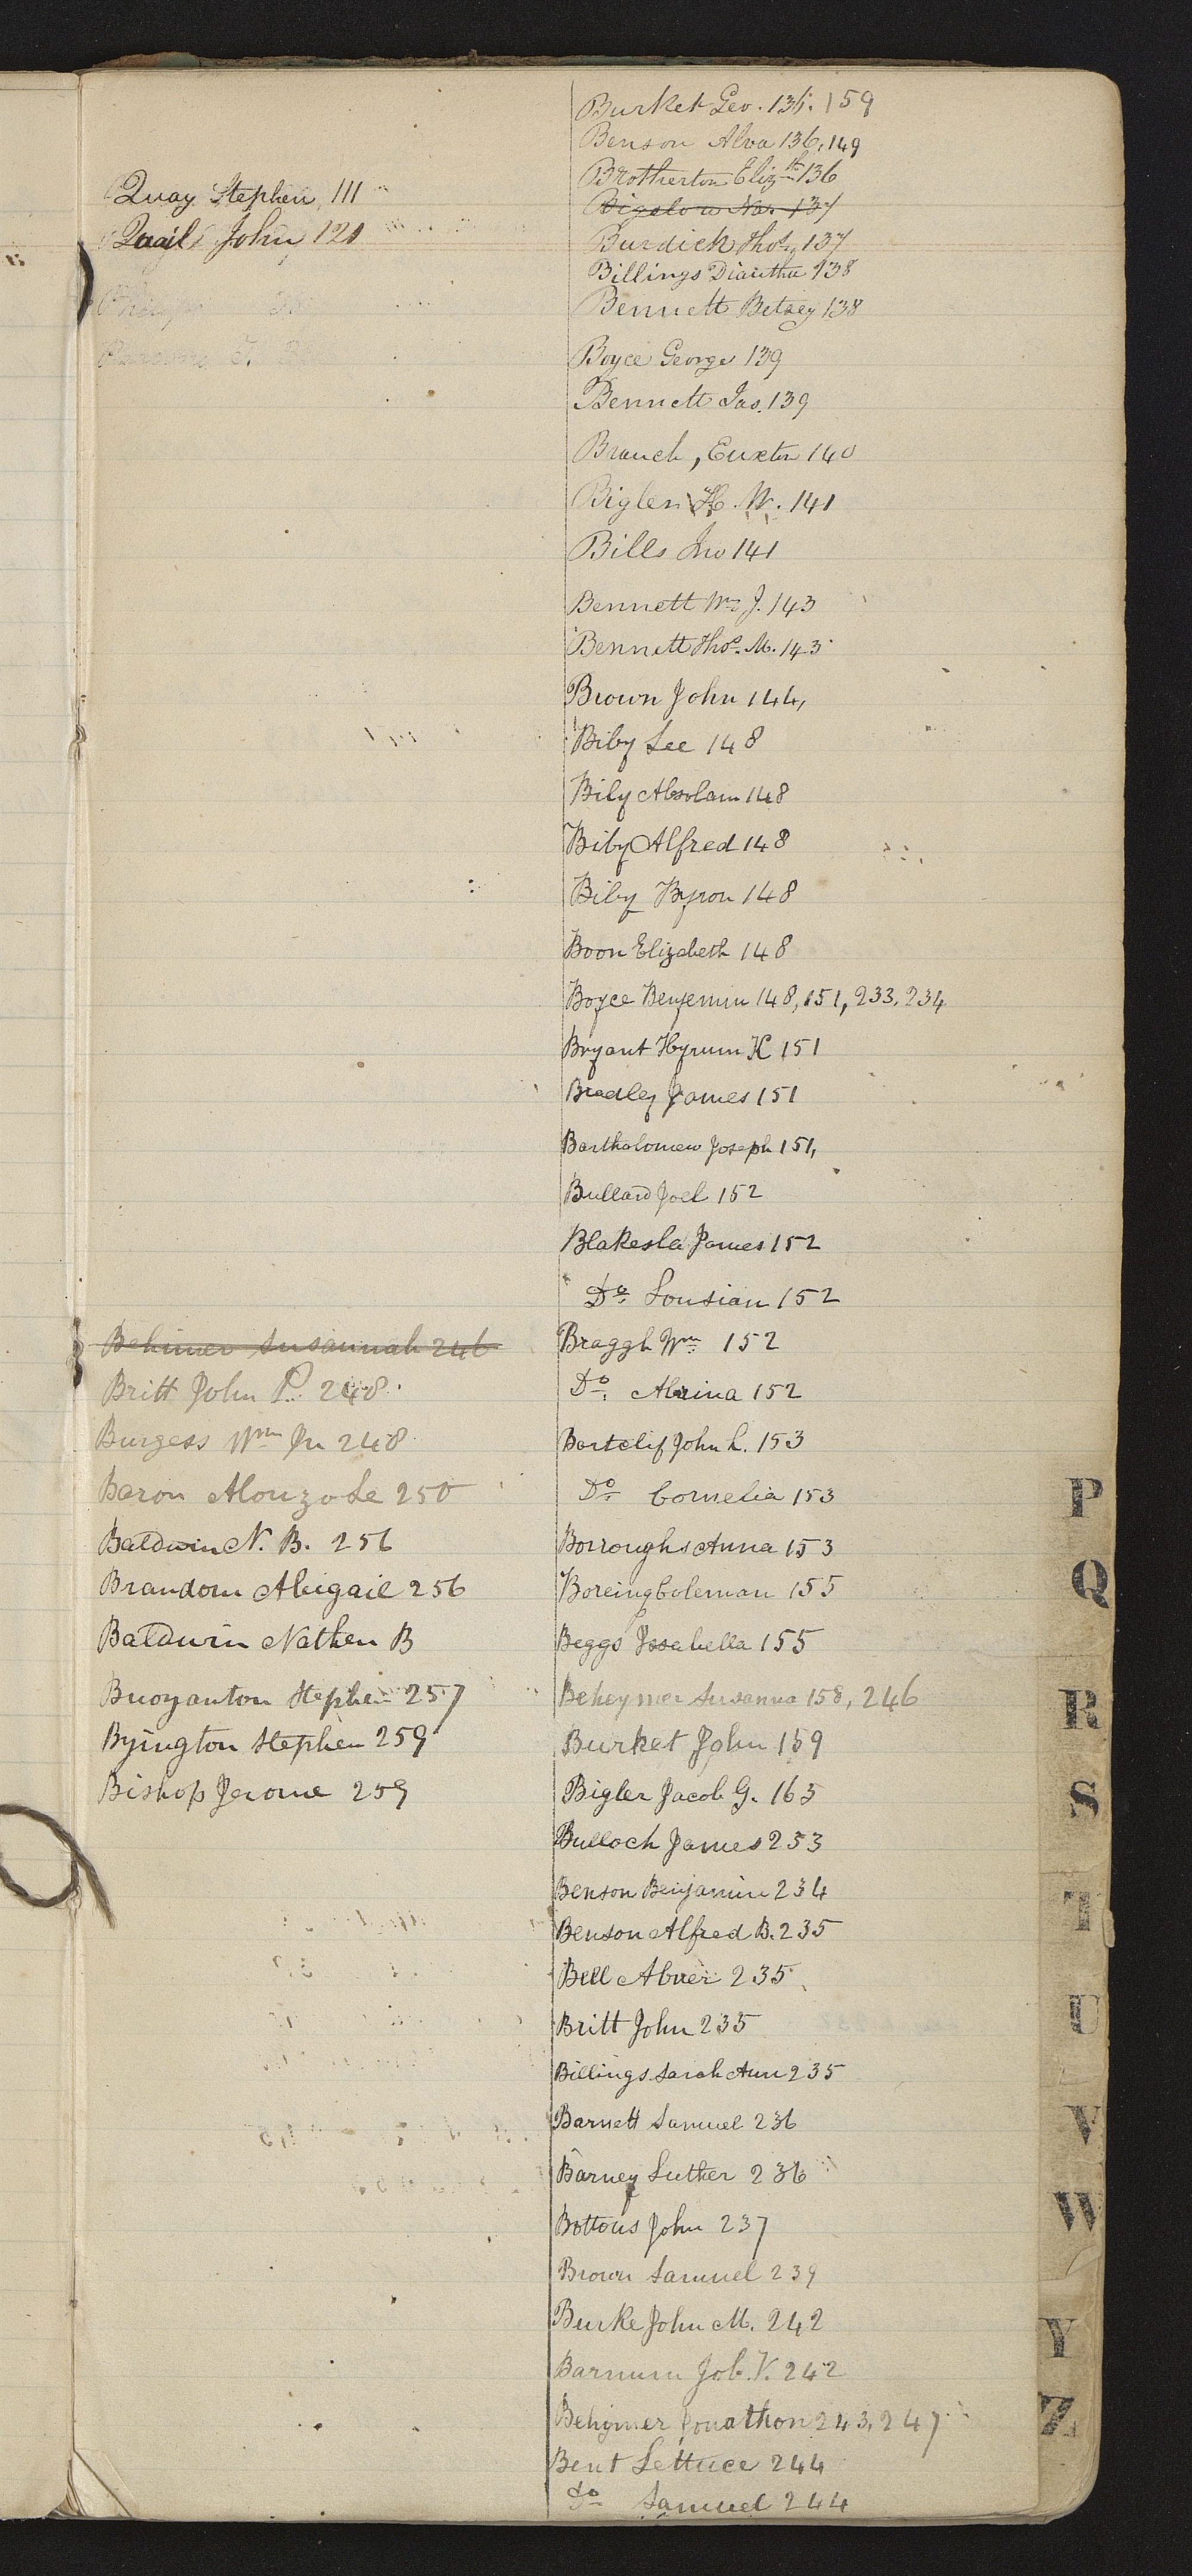 Quay Stephen, 111
Quail John, 121
Behimer Susannah 246
Britt John P. 248
Burgess Wm Jn 248
Baron Alonzo Le 250
Baldwin N. B. 256
Brandom Abigail 256
Baldwin Nathen B
Buoyanton Stephen 257
Byington Stephen 259
Bishop Jerome 259
Burket Geo. 135. 159
Benson Alva 136, 149
Brotherton Elizth 136
Bigelow Nar 137
Burdick Thos. 137
Billings Diantha 138
Bennett Betsey 138
Boyce George 139
Bennett Jas. 139
Branch, Euxton 140
Bigler H. W. 141
Bills Jno 141
Bennett Wm J. 143
Bennett Thos. M. 143
Brown John 144,
Biby Lee 148
Biby Absolam 148
Biby Alfred 148
Biby Byron 148
Boon Elizabeth 148
Boyce Benjemin 148, 151, 233, 234
Bryant Hyrum K 151
Bradley James 151
Bartholomew Joseph 151,
Bullard Joel 152
Blakesla James 152
Do. Lousian 152
Braggh Wm 152
Do. 152
Bartclif John L. 153
Do. Cornelia 153
Borroughs Anna 153
Boreing Coleman 155
Beggs Issabella 155
Beheymer Susanna 158, 246
Burket John 159
Bigler Jacob G. 165
Bulloch James 233
Benson Benjamin 234
Benson Alfred B. 235
Bell Abner 235
Britt John 235
Billings Sarah Ann 235
Barnett Samuel 236
Barney Luther 236
Bottous John 237
Brown Samuel 239
Burke John M. 242
Barnum Job. V. 242
Behymer Jonathon 243, 247
Bent Lettuce 244
do Samuel 244
P
Q
R
S
T
U
V
W
Y
Z